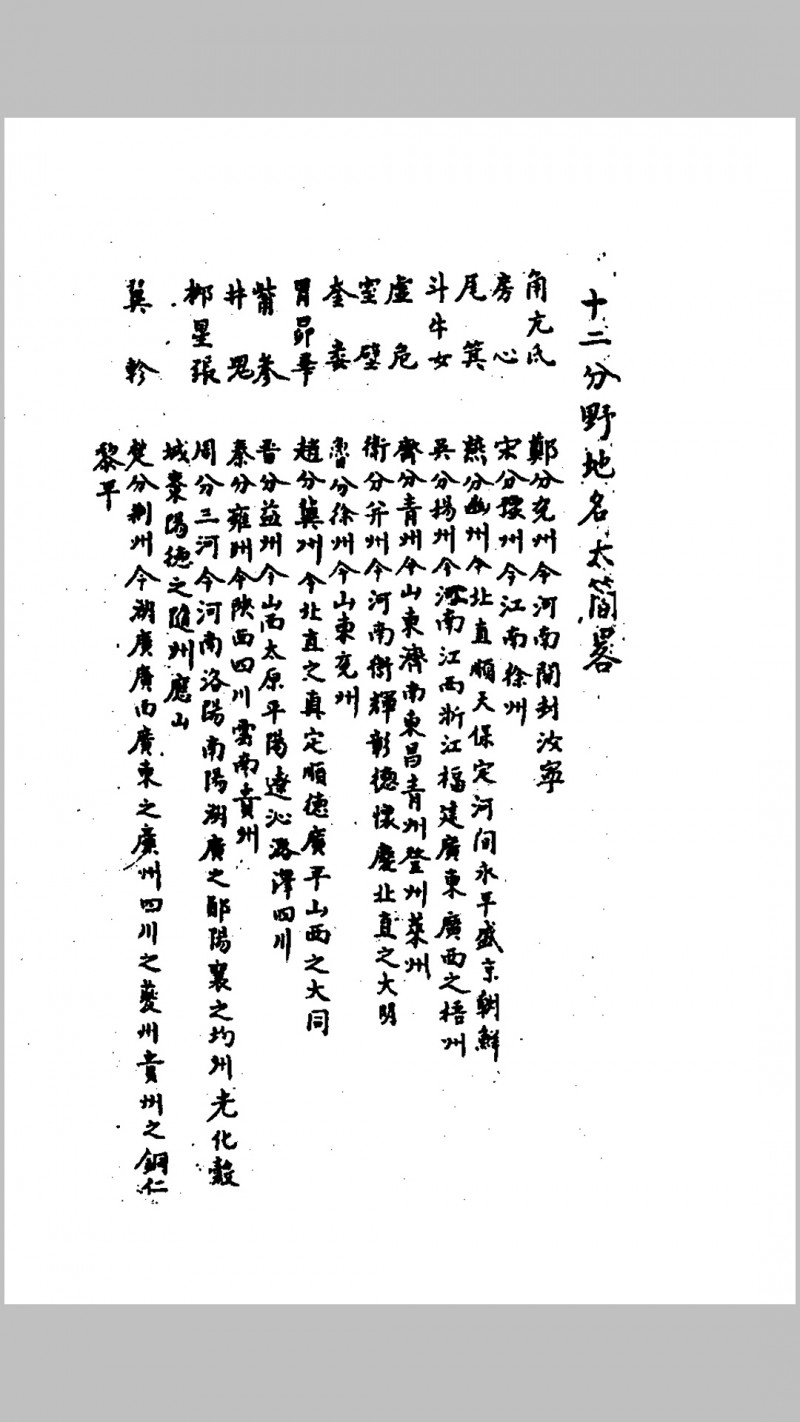 十二分野地名太簡畧
角亢氐 鄭分兗州今河南開封汝寧
房心 宋分豫州今江南徐州
尾箕 燕分幽州今北直順天保定河间永平盛京朝鮮
斗牛女 吳分揚州今河南江西浙江福建廣東廣西之梧州
虛危 齊分青州今山東濟南東昌青州登州萊州
室壁 衛分并州今河南衛輝彰德懷慶北直之大明
奎婁 魯分徐州今山東兗州
胃昴畢 趙分冀州今北直之真定順德廣平山西之大同
觜參 晋分益州今山西太原平陽遼沁潞澤四川
井鬼 秦分雍州今陝西四川雲南貴州
柳星張 周分三河今河南洛陽南陽湖廣之鄖陽襄之均州光化穀
城棗陽德之隨州應山
翼軫 楚分荆州今湖廣廣西廣東之廣州四川之夔州貴州之銅仁
黎平